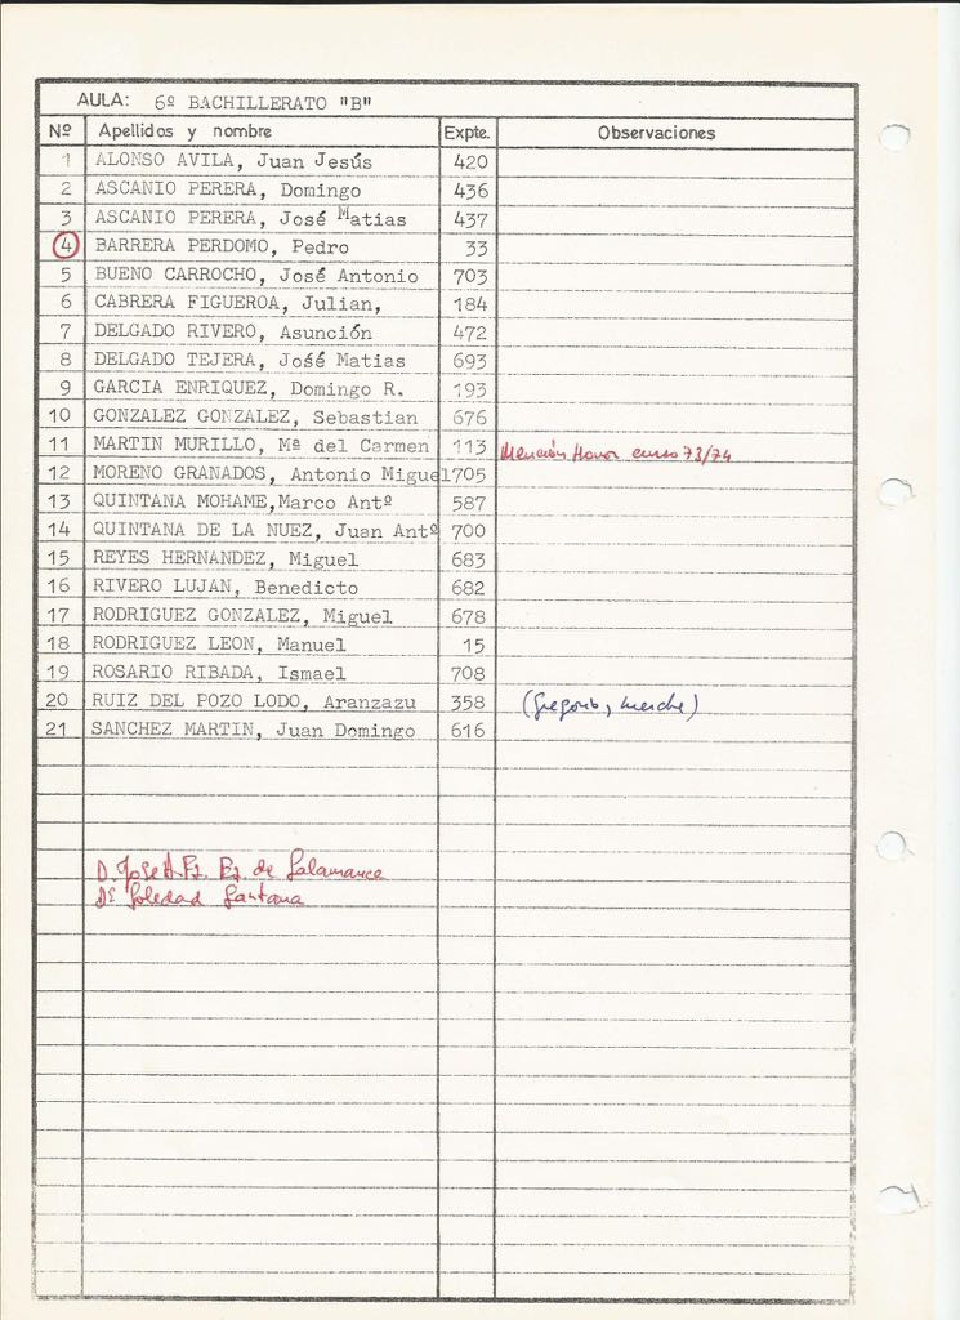 AULA: 6º BACHILLERATO "B"
Nº Apellidos y nombre Expte. Observaciones
1 ALONSO AVILA, Juan Jesús 420
2 ASCANIO PERERA, Domingo 436
3 ASCANIO PERERA, José Matias 437
4 BARRERA PERDOMO, Pedro 33
5 BUENO CARROCHO, José Antonio 703
6 CABRERA FIGUEROA, Julian, 184
7 DELGADO RIVERO, Asunción 472
8 DELGADO TEJERA, José Matias 693
9 GARCIA ENRIQUEZ, Domingo R. 193
10 GONZALEZ GONZALEZ, Sebastian 676
11 MARTIN MURILLO, Mª del Carmen 113 Mención Honor curso 73/74
12 MORENO GRANADOS, Antonio Miguel 705
13 QUINTANA MOHAME,Marco Antº 587
14 QUINTANA DE LA NUEZ, Juan Antº 700
15 REYES HERNANDEZ, Miguel 683
16 RIVERO LUJAN, Benedicto 682
17 RODRIGUEZ GONZALEZ, Miguel 678
18 RODRIGUEZ LEON, Manuel 15
19 ROSARIO RIBADA, Ismael 708
20 RUIZ DEL POZO LODO, Aranzazu 358 (Gregorio, Merche)
21 SANCHEZ MARTIN, Juan Domingo 616
D. Jose A. de Salamanca
Dª Soledad Santana